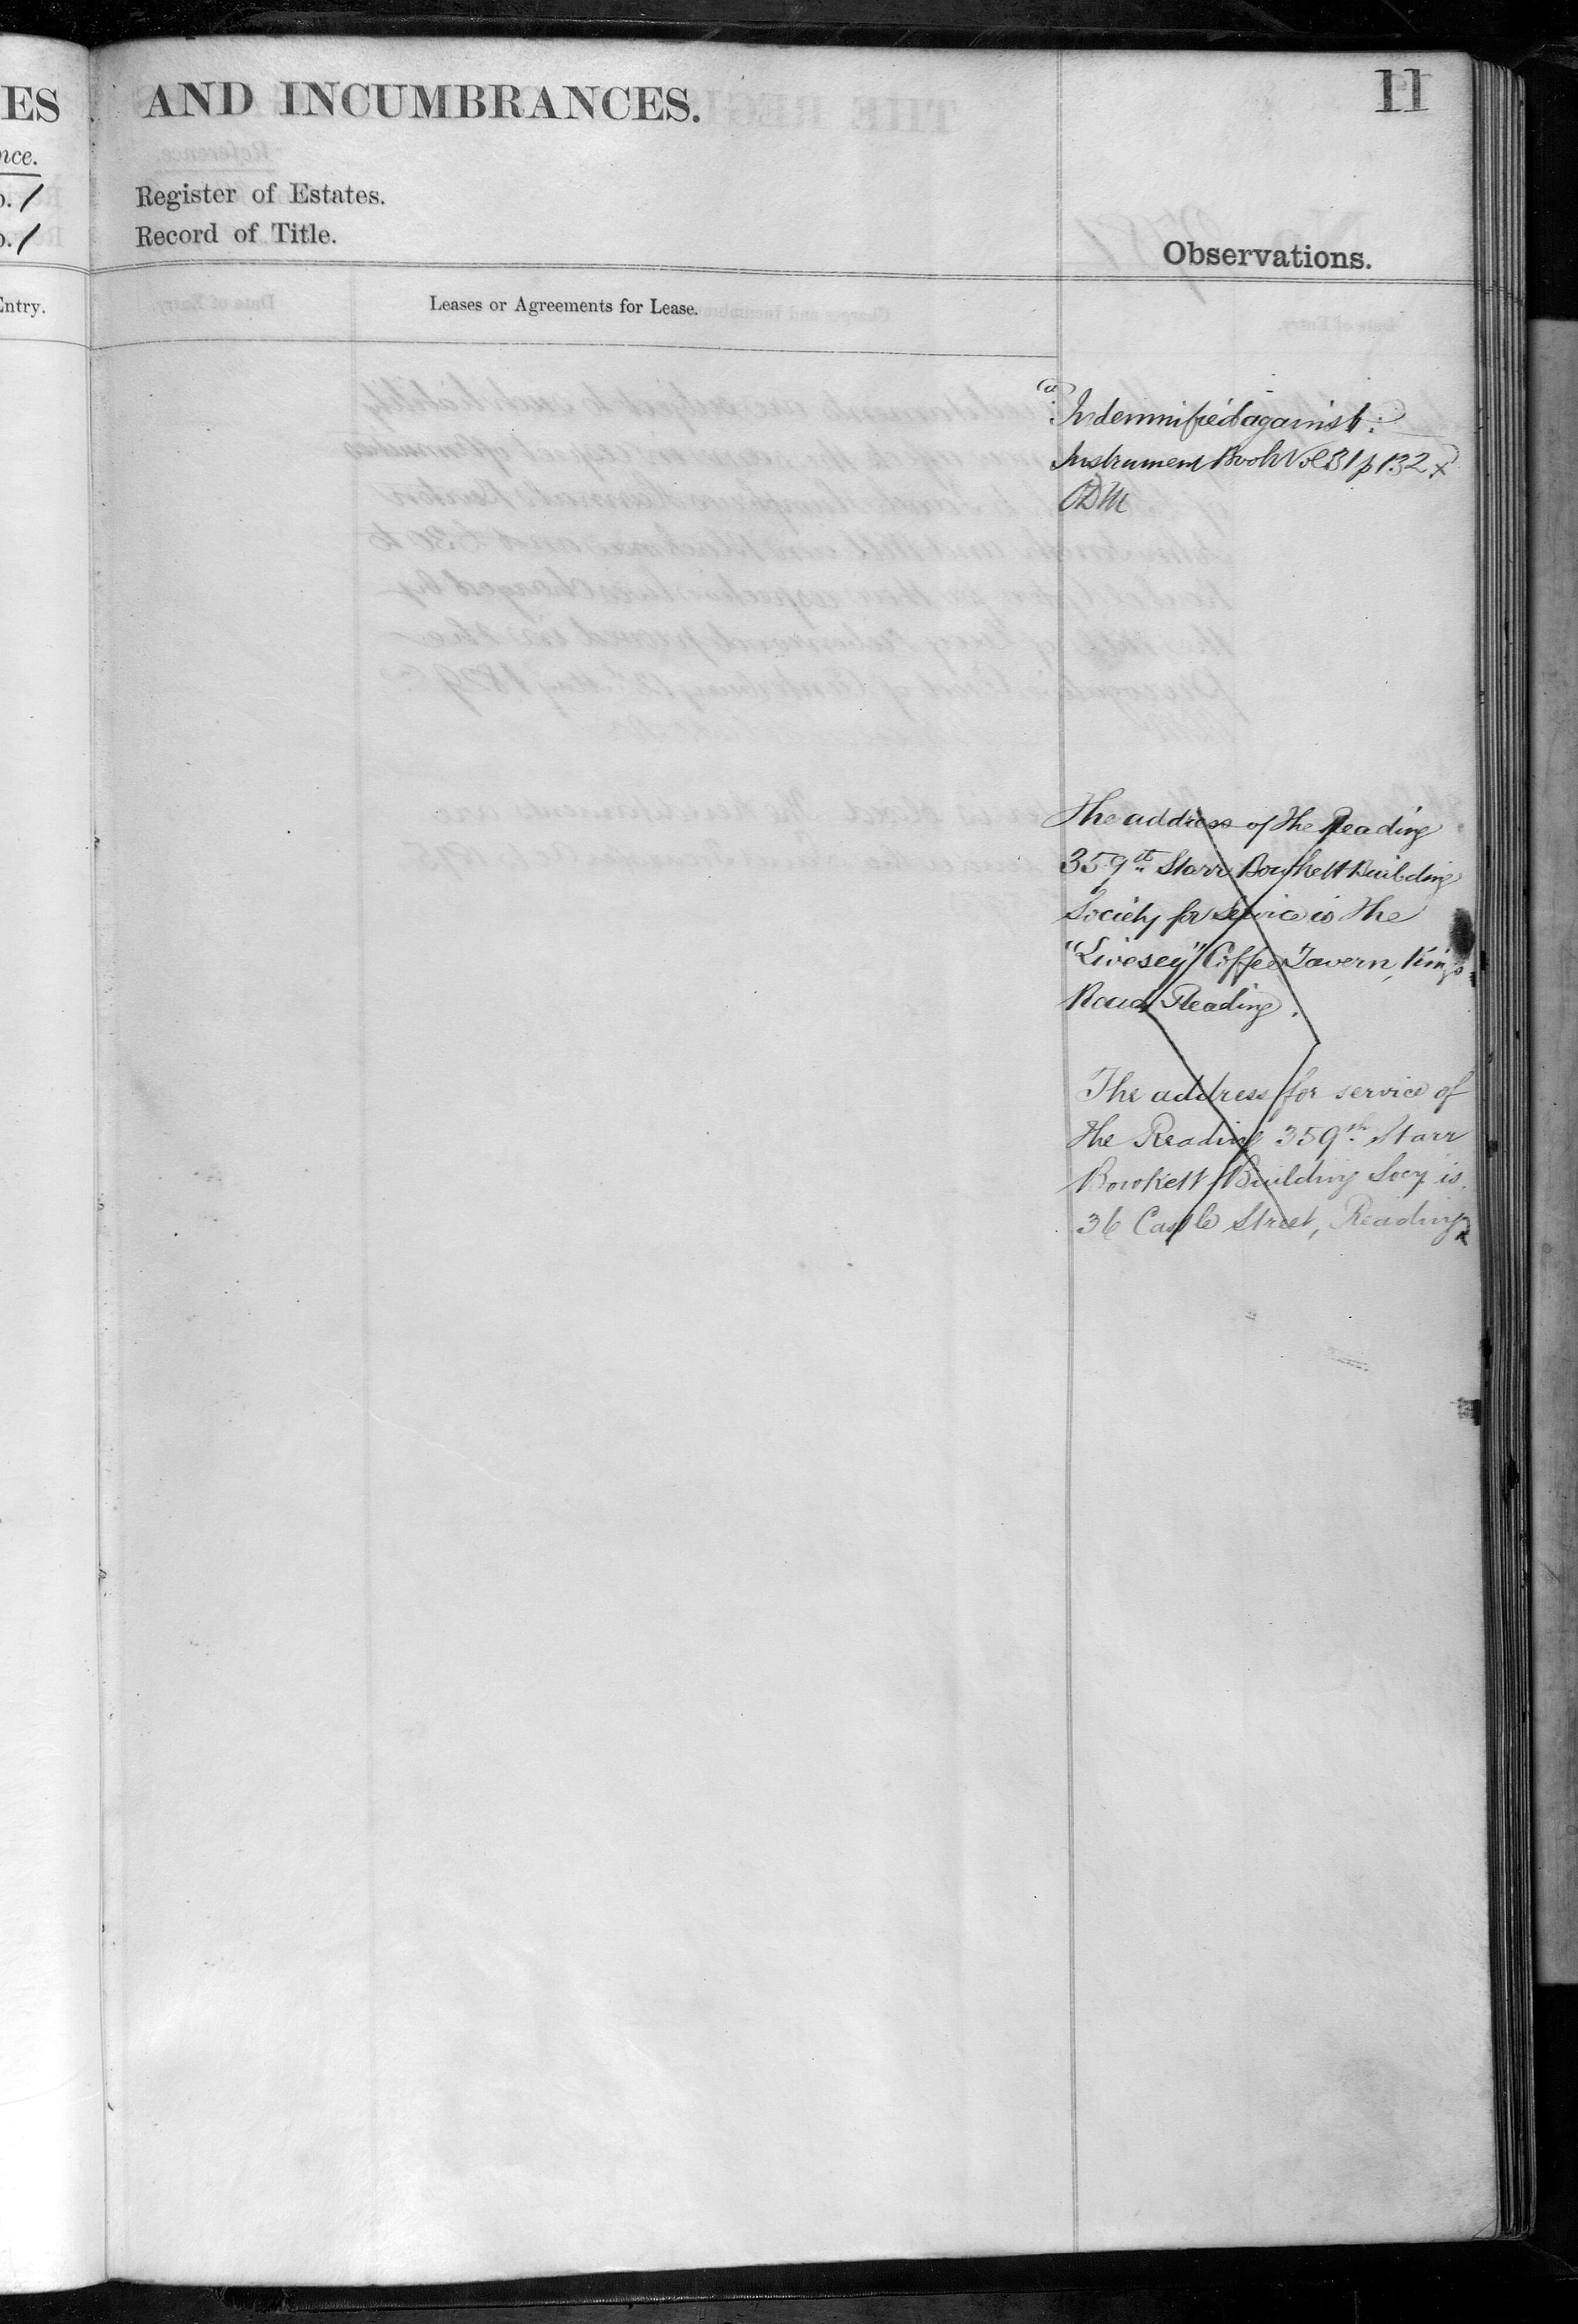 11
ES AND INCUMBRANCES.
nce.
o. 1 Register of Estates.
o. 1 Record of Title.
Observations.
Entry.
Leases or Agreements for Lease.
(a)
Indemnified against:
Instrument Book Vol 31 p 132 x
The address of the Reading
359th Starr Bowkett Building
Society for service is the
"Livesey" Coffee Tavern, Kings
Road Reading.
The address for service of
the Reading 359th Starr
Bowkett Building Socy is
36 Castle Street, Reading